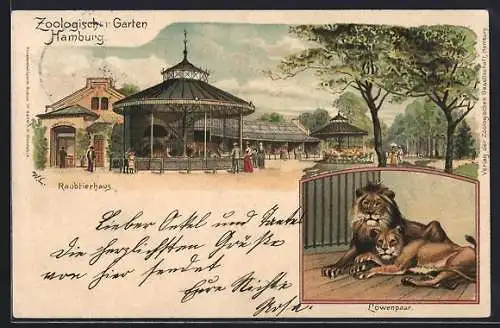 Zoologischer Garten
Hamburg.
Verlag der Zoologischen Gesellschaft, Hamburg
Raubtierhaus.
Lieber Onkel und Tante
Die herzlichsten Grüße
von hier sendet
Eure Nichte
Rosa.
Löwenpaar.